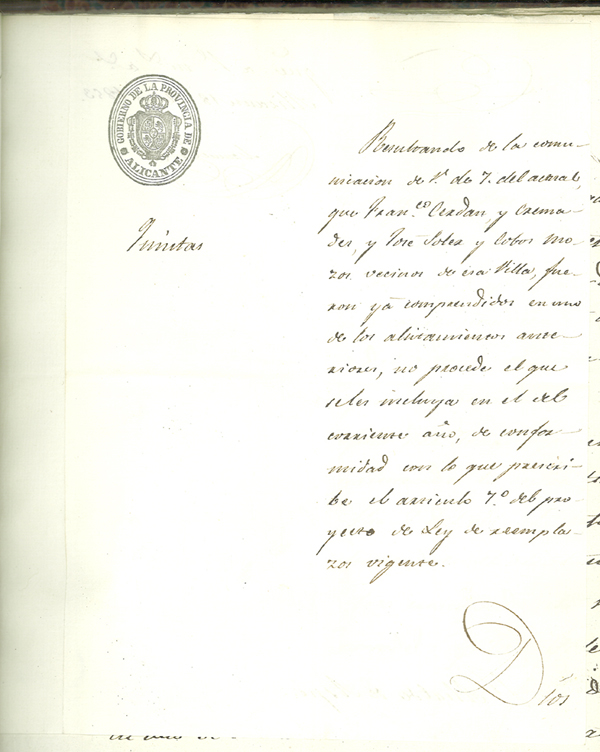 GOBIERNO DE LA PROVINCIA DE
ALICANTE
Quintas
Resultando de la comu-
nicacion de V. de 7. del actual,
que Fran.co Cerdan, y Crema-
des, y José Soler y Cobos mo-
zos vecinos de esa Villa, fue-
ron ya comprendidos en uno
de los alistamientos ante-
riores, no procede el que
se les incluya en el del
corriente año, de confor-
midad con lo que prescri-
be el articulo 7.º del pro-
yecto de Ley de reempla-
zos vigente.
Dios